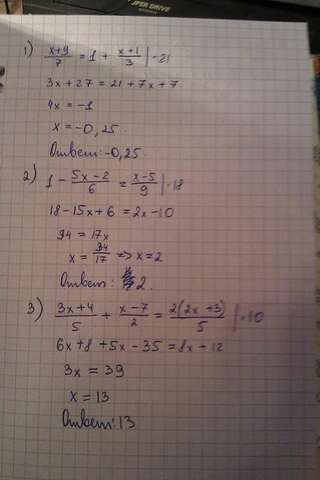 SUPER DRIVE
1) (x+9)/7 = 1 + (x+1)/3 | ·21
3x + 27 = 21 + 7x + 7
4x = -1
x = -0,25.
Ответ: -0,25.
2) 1 - (5x-2)/6 = (x-5)/9 | ·18
18 - 15x + 6 = 2x - 10
34 = 17x
x = 34/17 => x = 2
Ответ: 2.
3) (3x+4)/5 + (x-7)/2 = 2(2x+3)/5 | ·10
6x + 8 + 5x - 35 = 8x + 12
3x = 39
x = 13
Ответ: 13